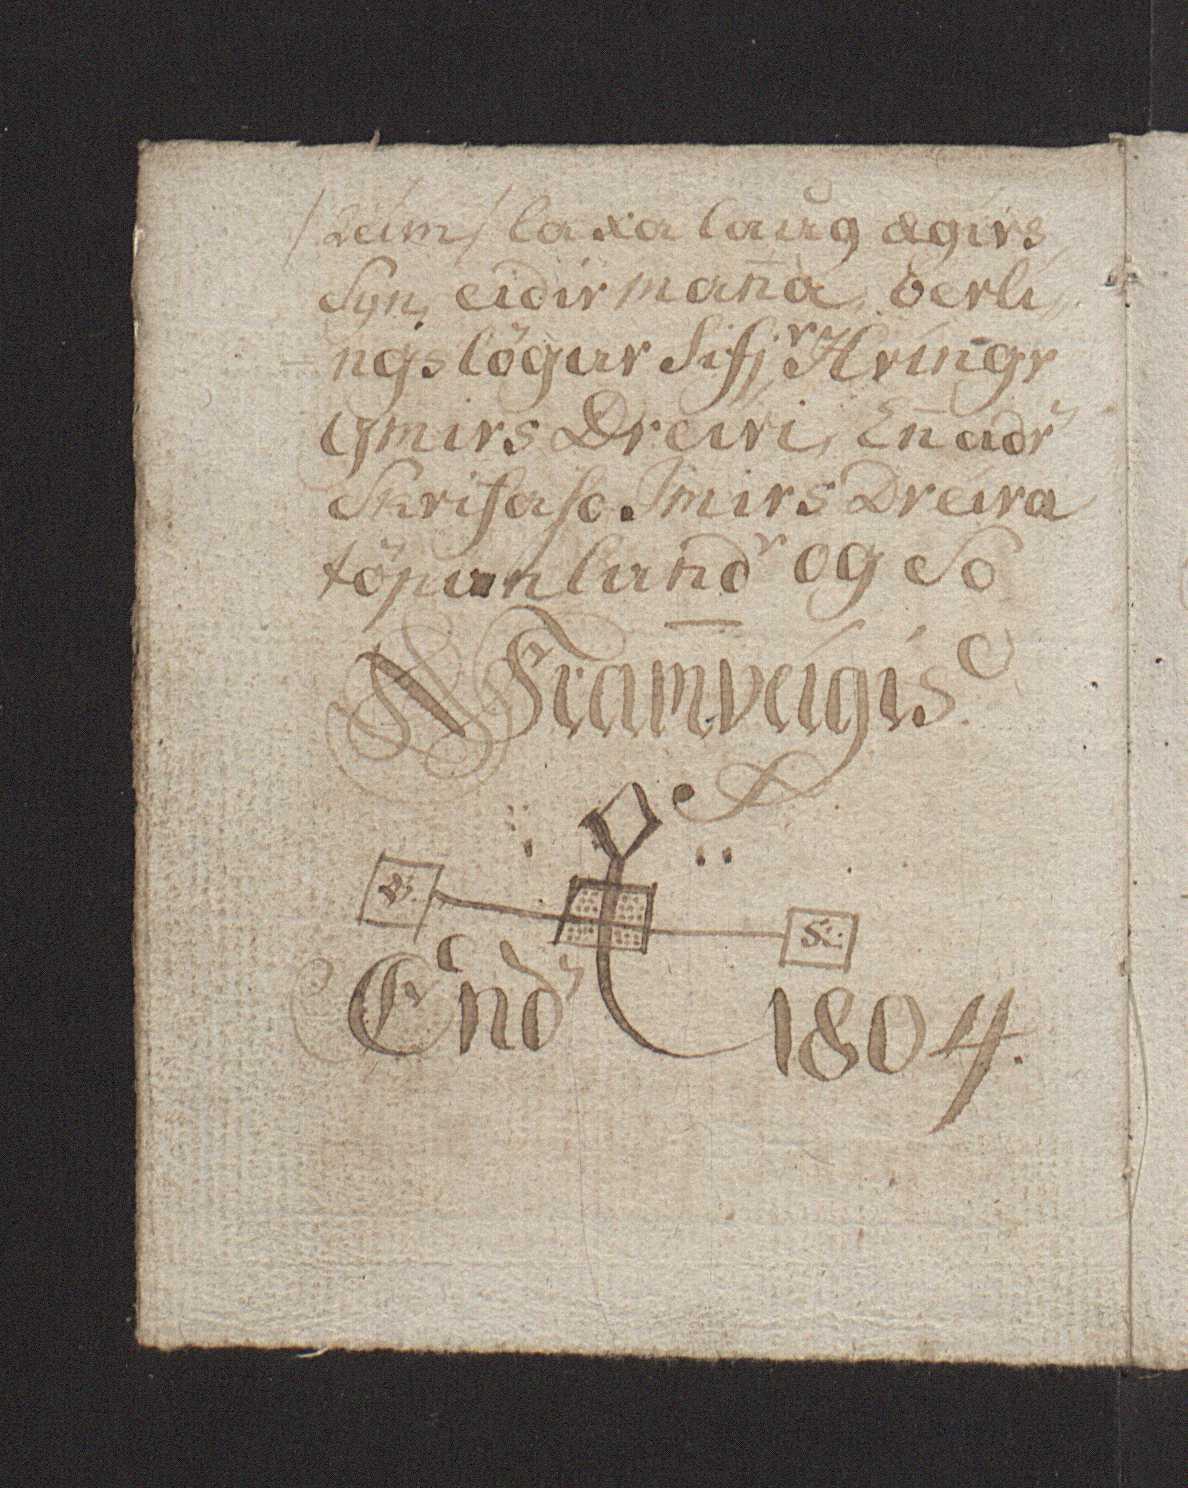 / Reim / laxa laug ægirs
Syn, eidir mana, berli,,
ngs lögur Sifjr Hringr
ymirs Dreiri, En adr
Skrifaso. Imirs Dreira
töpun landr og So
Framveigis
V. Sc:
Endr 1804.